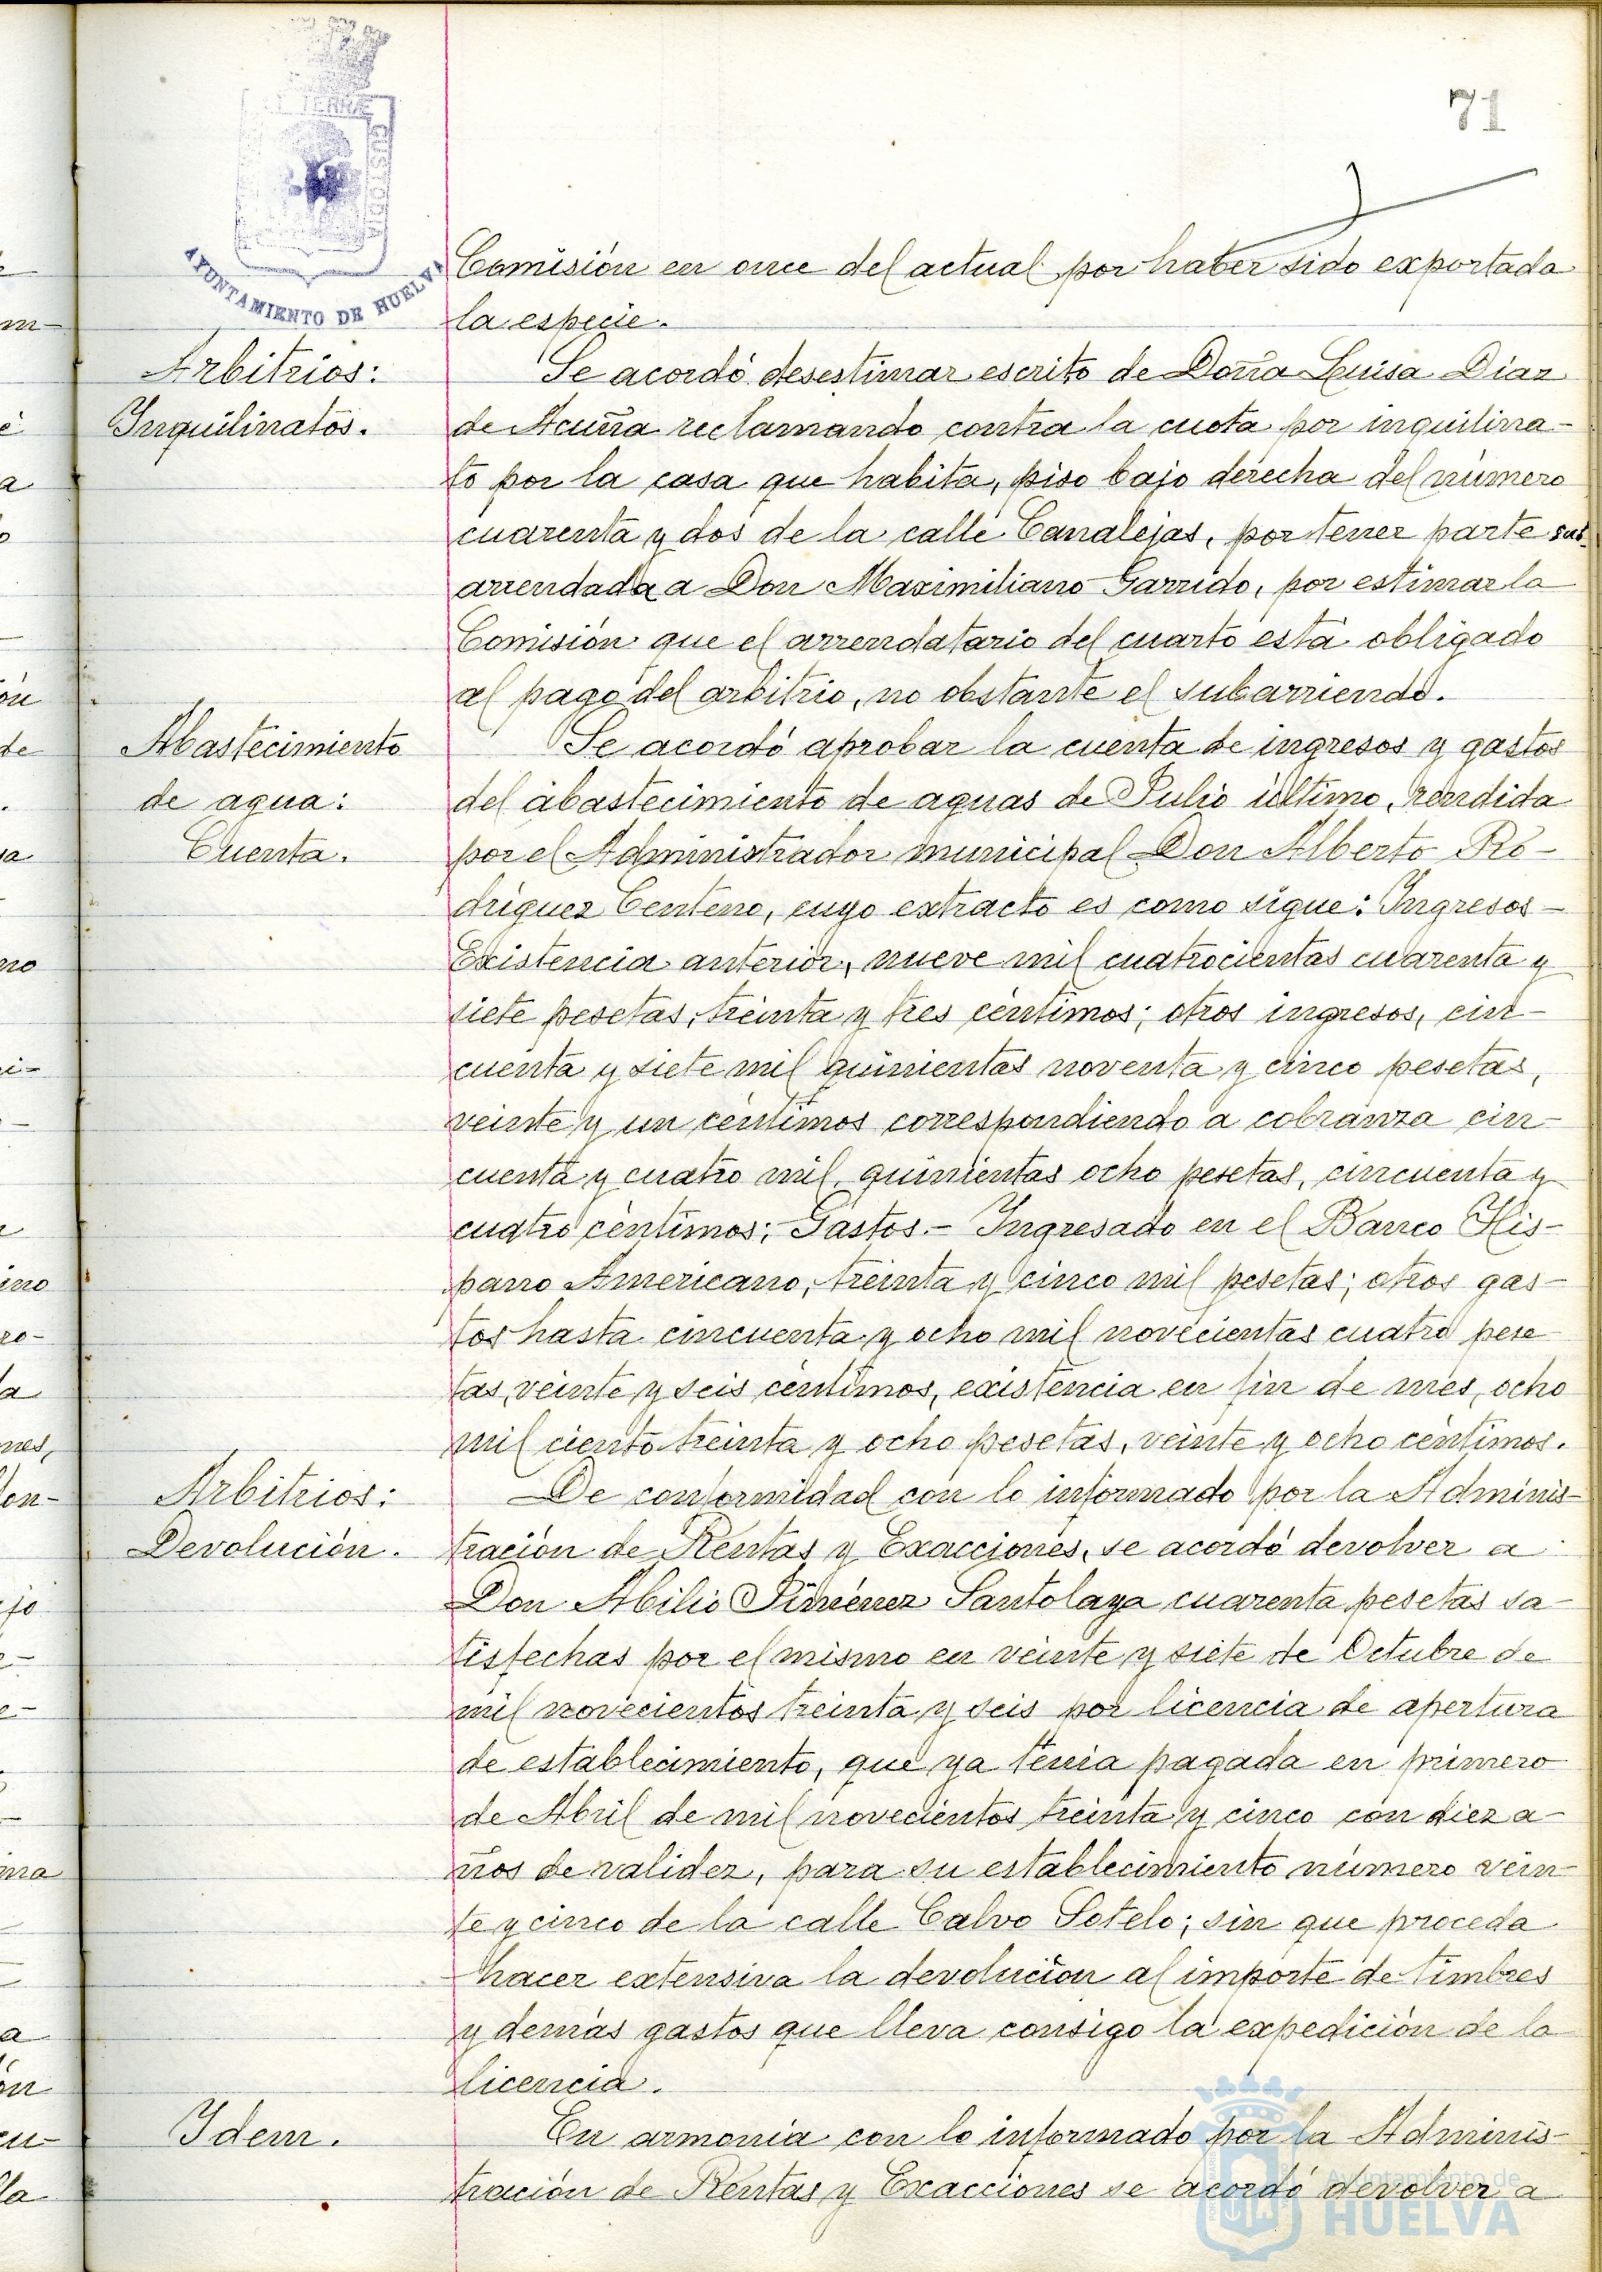 71
AYUNTAMIENTO DE HUELVA
Comisión en once del actual por haber sido exportada
la especie.
Arbitrios:
Inquilinatos.
Se acordó desestimar escrito de Doña Luisa Díaz
de Acuña reclamando contra la cuota por inquilina-
to por la casa que habita, piso bajo derecha del número
cuarenta y dos de la calle Canalejas, por tener parte sub-
arrendada a Don Maximiliano Garrido, por estimar la
Comisión que el arrendatario del cuarto está obligado
al pago del arbitrio, no obstante el subarriendo.
Abastecimiento
de agua:
Cuenta.
Se acordó aprobar la cuenta de ingresos y gastos
del abastecimiento de aguas de Julio último, rendida
por el Administrador municipal Don Alberto Ro-
dríguez Centeno, cuyo extracto es como sigue: Ingresos-
Existencia anterior, nueve mil cuatrocientas cuarenta y
siete pesetas, treinta y tres céntimos; otros ingresos, cin-
cuenta y siete mil quinientas noventa y cinco pesetas,
veinte y un céntimos correspondiendo a cobranza cin-
cuenta y cuatro mil, quinientas ocho pesetas, cincuenta y
cuatro céntimos; Gastos.- Ingresado en el Banco His-
pano Americano, treinta y cinco mil pesetas; otros gas-
tos hasta cincuenta y ocho mil novecientas cuatro pese-
tas, veinte y seis céntimos, existencia en fin de mes, ocho
mil ciento treinta y ocho pesetas, veinte y ocho céntimos.
Arbitrios:
Devolución.
De conformidad con lo informado por la Adminis-
tración de Rentas y Exacciones, se acordó devolver a
Don Abilio Jiménez Santolaya cuarenta pesetas sa-
tisfechas por el mismo en veinte y siete de Octubre de
mil novecientos treinta y seis por licencia de apertura
de establecimiento, que ya tenía pagada en primero
de Abril de mil novecientos treinta y cinco con diez a-
ños de validez, para su establecimiento número vein-
te y cinco de la calle Calvo Sotelo; sin que proceda
hacer extensiva la devolución al importe de timbres
y demás gastos que lleva consigo la expedición de la
licencia.
Idem.
En armonía con lo informado por la Adminis-
tración de Rentas y Exacciones se acordó devolver a
Ayuntamiento de
HUELVA